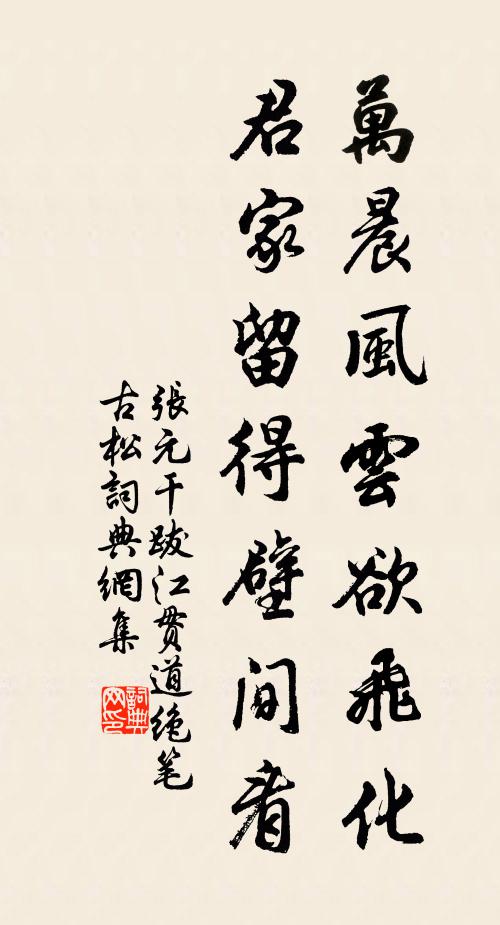 萬晨風雲欲飛化
君家留得壁間看
張元干跋江貫道絶笔
古松詞典網集
詞典網印